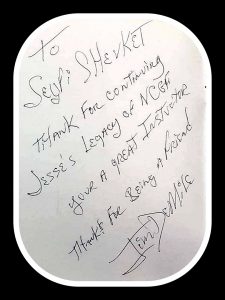 To
Segli SHEVKET
THANK FOR CONTINUING
JESSE'S LEGACY OF NCGH
YOUR A GREAT INSTRUCTOR
THANKS FOR BEING A FRIEND